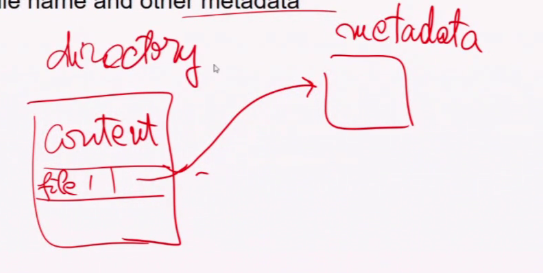 ile name and other metadata
directory
metadata
content
file